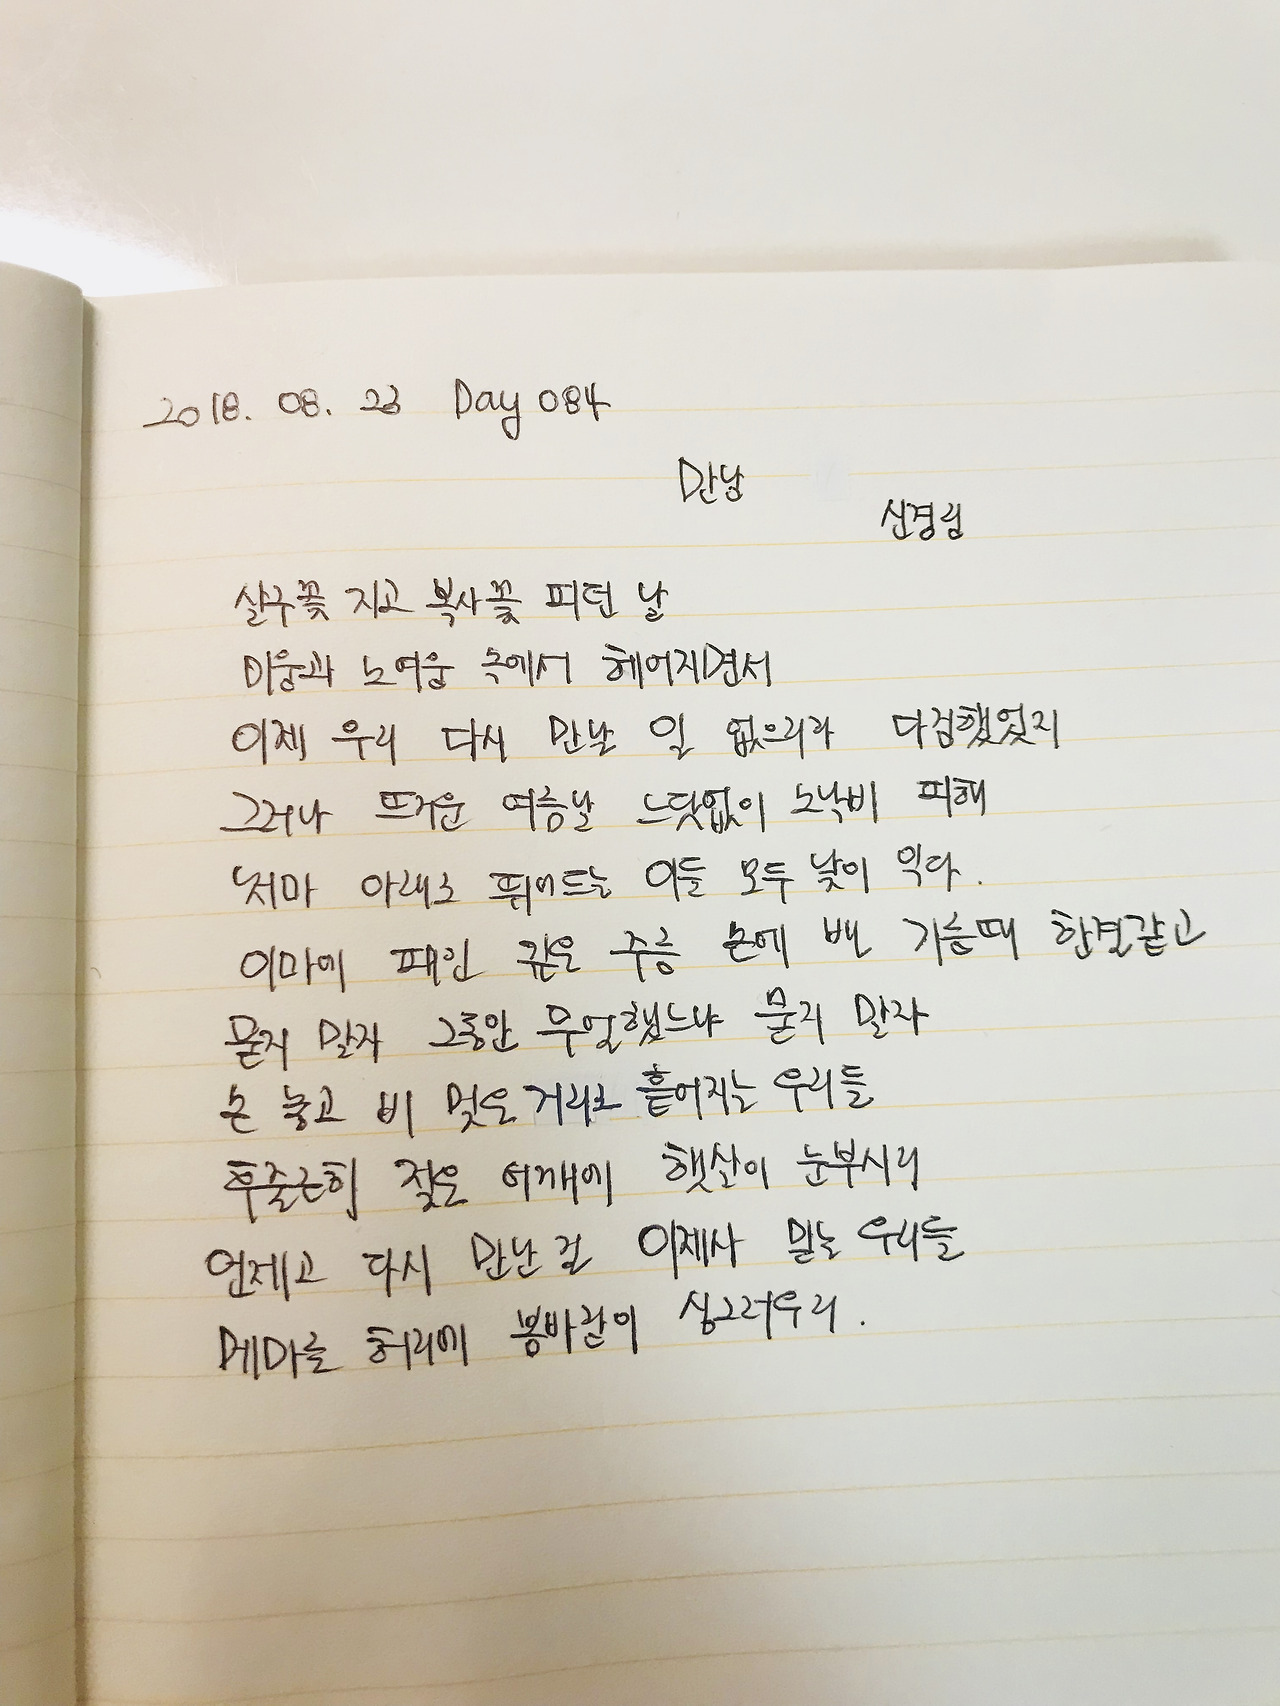 2018. 08. 23 Day 084
만남
신경림
살구꽃 지고 복사꽃 피던 날
미움과 노여움 속에서 헤어지면서
이제 우리 다시 만날 일 없으리라 다짐했었지
그러나 뜨거운 여름날 느닷없이 소낙비 피해
처마 아래로 뛰어드는 이들 모두 낯이 익다.
이마에 패인 깊은 주름 손에 밴 기름때 한결같고
묻지 말자 그동안 무얼했느냐 묻지 말자
손 놓고 비 멎은 거리로 흩어지는 우리들
후줄근히 젖은 어깨에 햇살이 눈부시리
언제고 다시 만난 걸 이제사 믿는 우리들
메마른 허리에 봄바람이 싱그러우리.